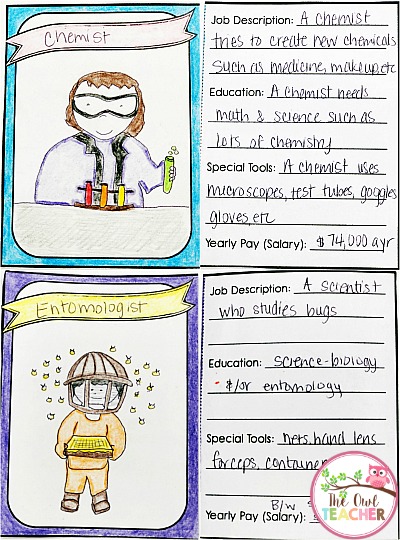 Chemist
Job Description: A chemist
tries to create new chemicals
such as medicine, makeup, etc
Education: A chemist needs
math & science such as
lots of chemistry
Special Tools: A chemist uses
microscopes, test tubes, goggles
gloves, etc
Yearly Pay (Salary): $74,000 a yr
Entomologist
Job Description: A scientist
who studies bugs
Education: science-biology
&/or entomology
Special Tools: nets, hand lens
forceps,
B/w
Yearly Pay (Salary):
The Owl
TEACHER